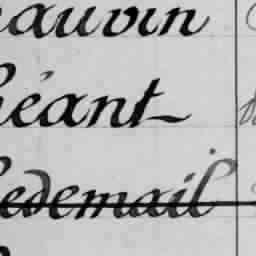 eauvin
héant
edemail